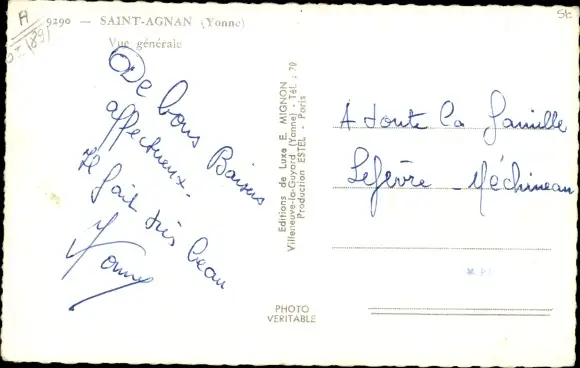 A
89
St
9290 — SAINT-AGNAN (Yonne)
Vue générale
De bons Baisers
affectueux.
Il fait très beau
Editions de Luxe E. MIGNON
Villeneuve-la-Guyard (Yonne) - Tél. : 79
Production ESTEL - Paris
A toute la famille
Lefevre - Méchineau
PHOTO
VERITABLE